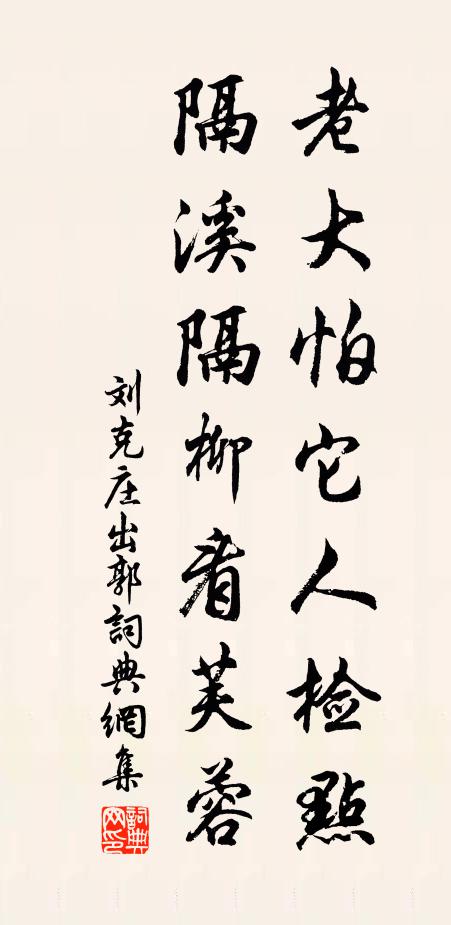 老大怕它人检點
隔溪隔柳看芙蓉
刘克庄出郭詞典網集
詞典网印